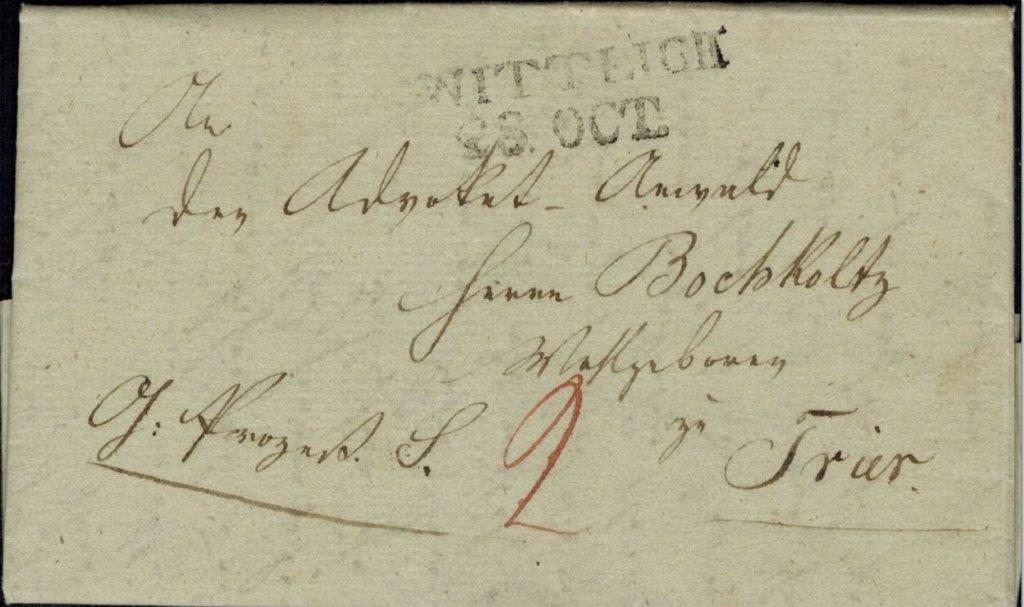 WITTLICH
28. OCT.
An
den Advokat-Anwald
Herrn Bochkoltz
Wohlgeboren
zu
Trier.
G: Prozeß. S.
2